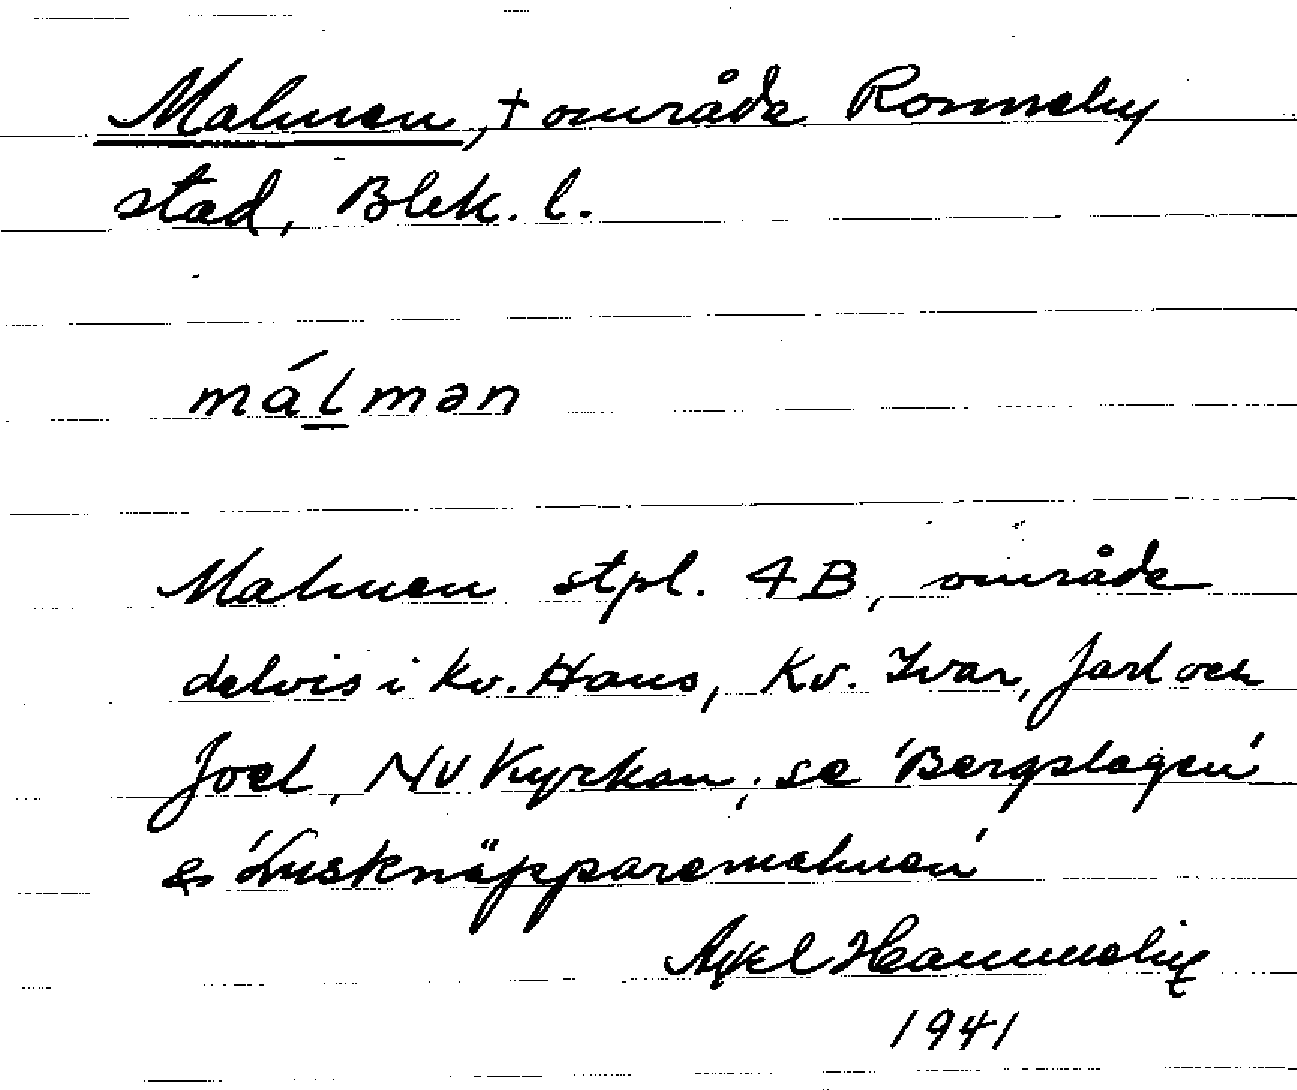 Malmen, + område Ronneby
stad, Blek. l.
málmən
Malmen stpl. 4B, område
delvis i kv. Hans, Kv. Ivar, Jarl och
Joel, NV Kyrkan; se 'Bergslagen'
& 'Lusknäpparemalmen'
Axel
1941